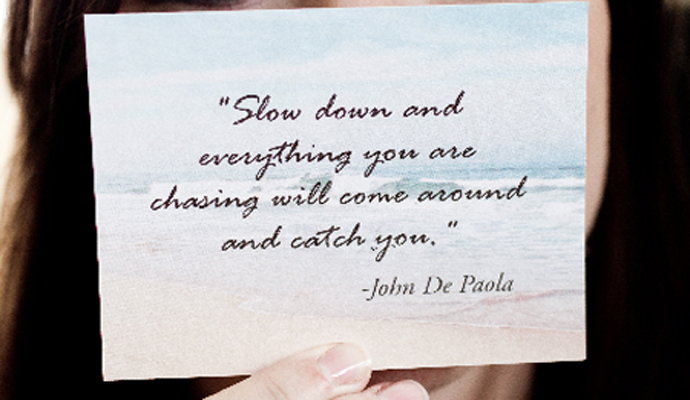 "Slow down and
everything you are
chasing will come around
and catch you."
-John De Paola